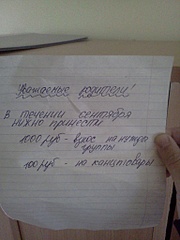 Уважаемые родители!
В течении сентября
нужно принести
1000 руб - взнос на нужды
группы
100 руб - на канцтовары